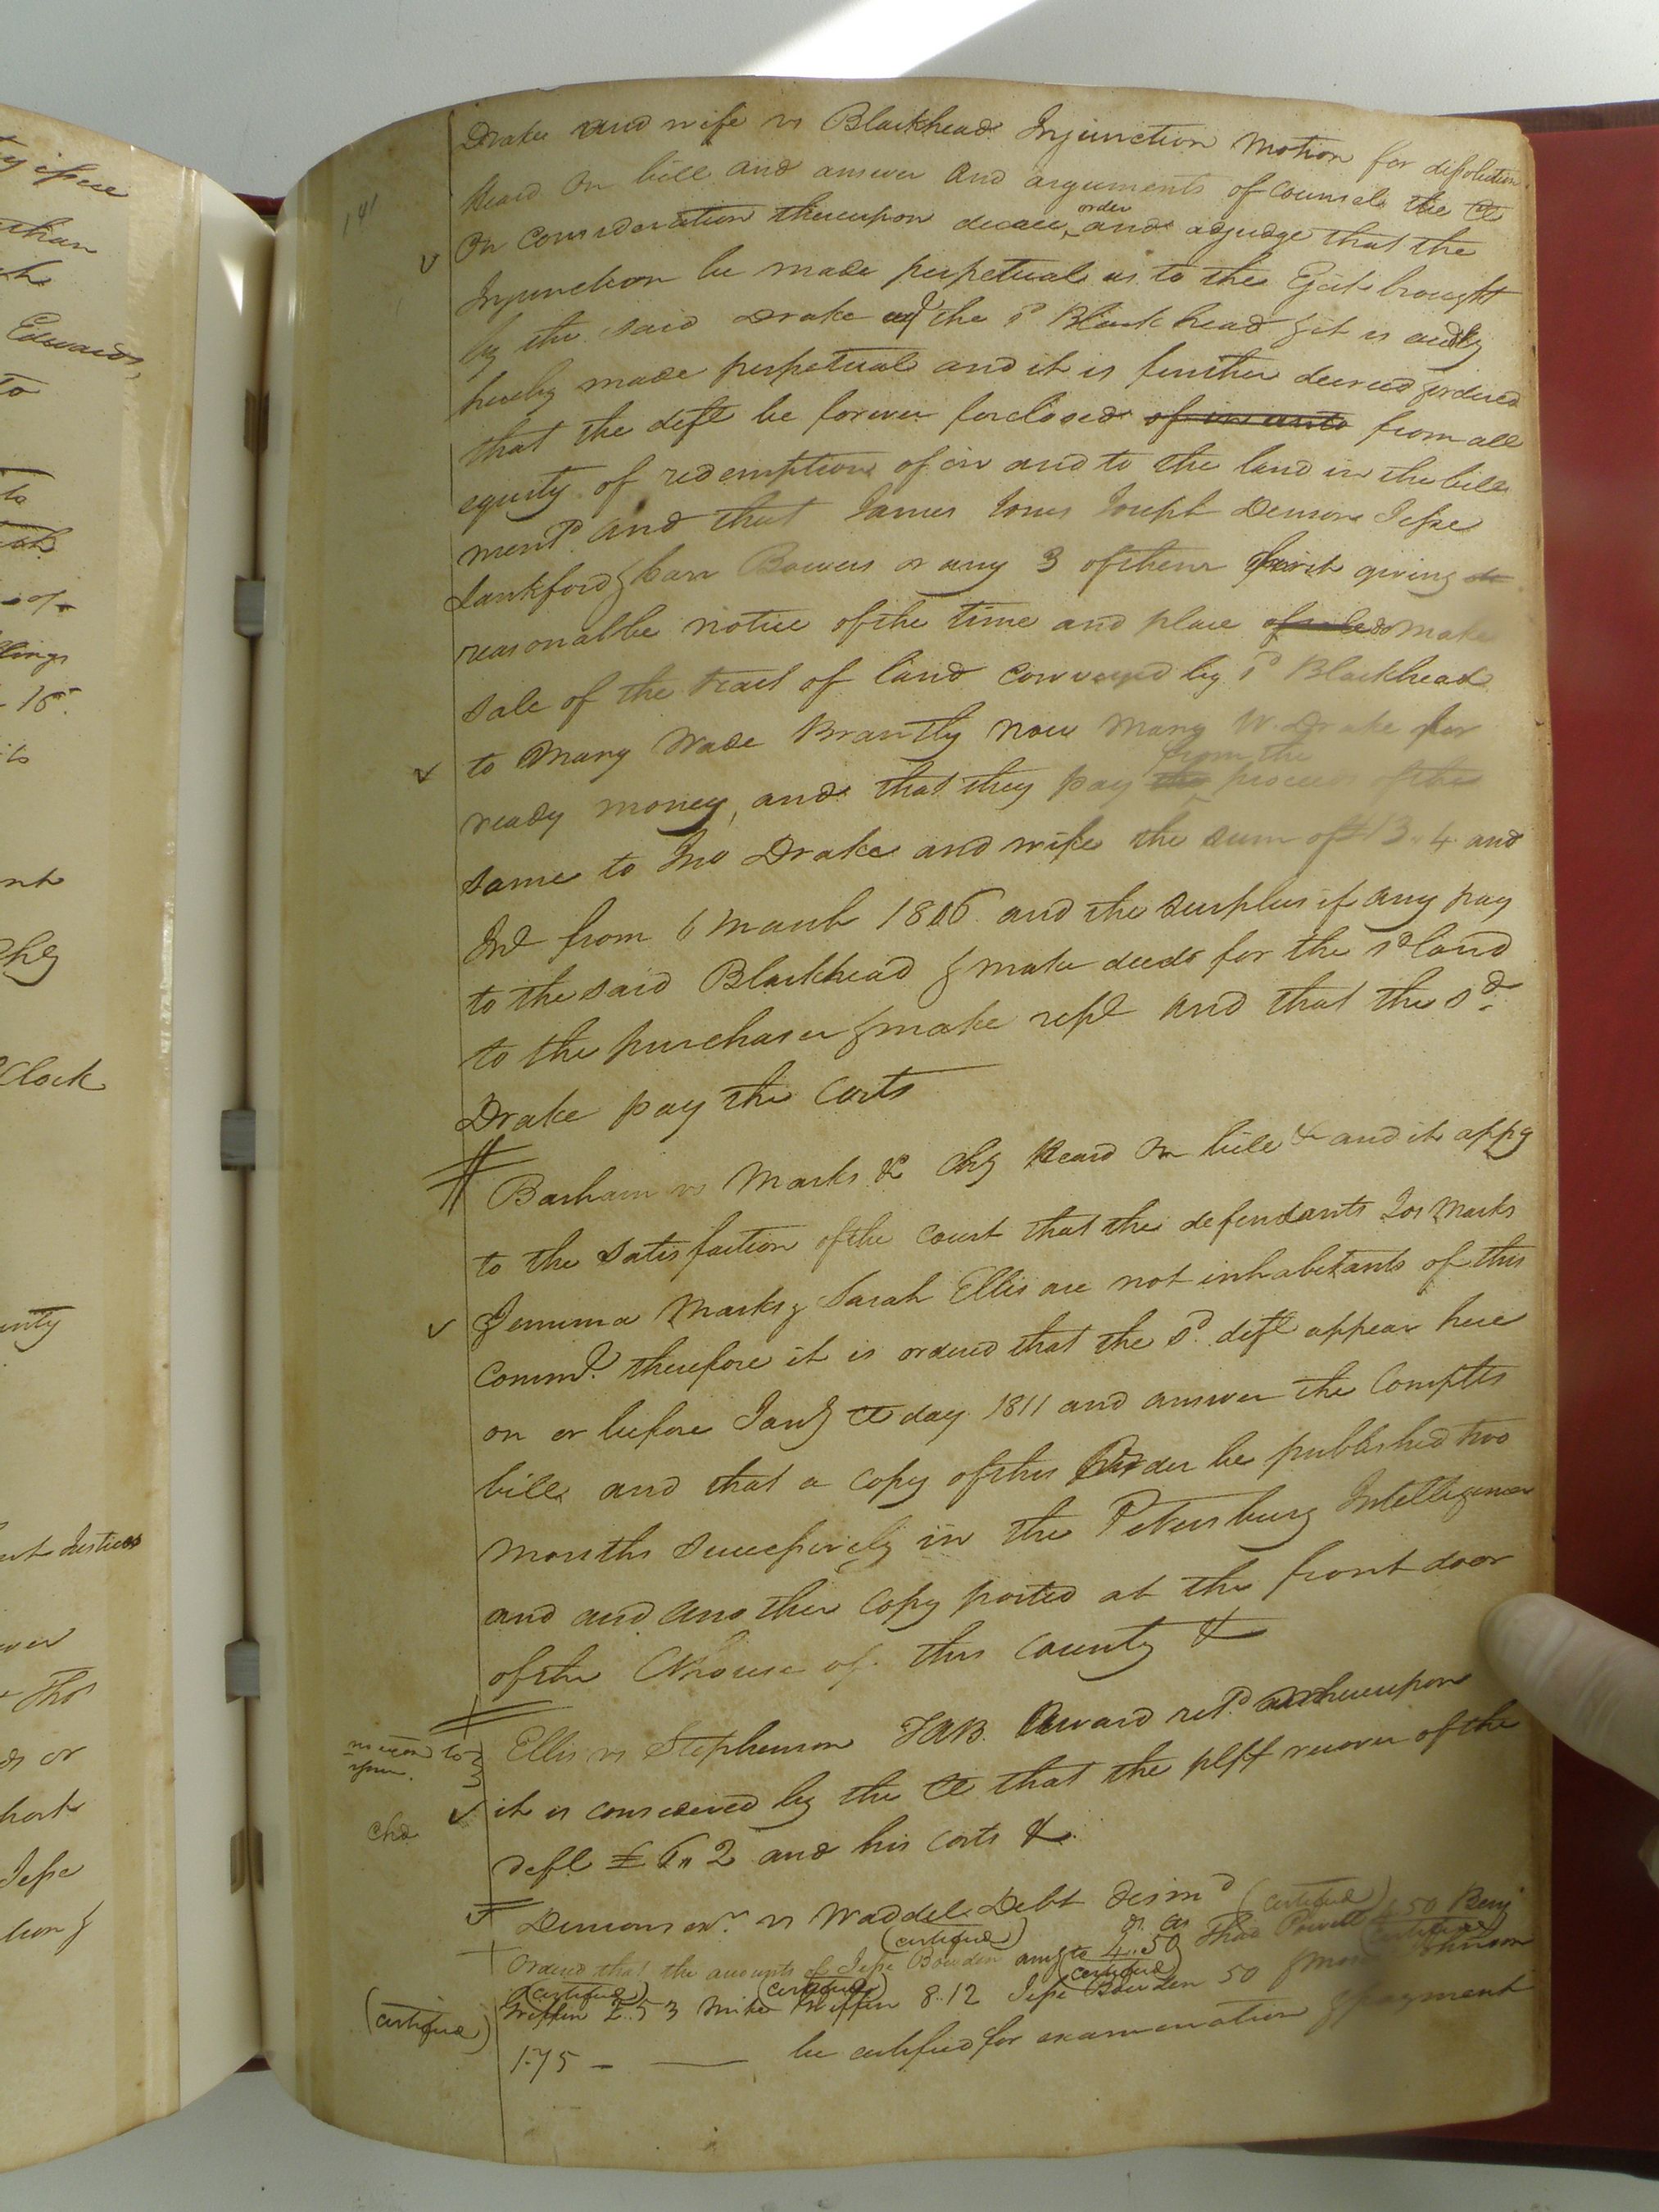 141
Drake and wife vs Blackhead Injunction Motion for dissolution
Heard on bill and answer and arguments of counsel the Ct
On consideration thereupon decree, order and adjudge that the
Injunction be made perpetual as to the Eject brought
by the said Drake agt the sd Blackhead & it is
hereby made perpetual and it is further decreed & ordered
that the deft be forever forclosed from all
equity of redemption of in and to the land in the bill
mentd. and that James Jones Joseph Denson Jesse
Lankford & Bowers or any 3 of them first giving
reasonalbe notice of the time and place make
sale of the tract of land conveyed by sd Blackhead
to Mary Wade Brantly now Mary W. Drake for
ready money, and that they pay from the proceeds of the
same to Jno Drake and wife the sum of 13..4 and
Int from 6 March 1806 and the surplus if any pay
to the said Blackhead & make deeds for the sd land
to the purchaser & make rept and that the sd.
Drake pay the Costs
Barham vs Marks &c Chy Heard on bill &c and it appg
to the Satisfaction of the Court that the defendants Jos Marks
Jemima Marks & Sarah Ellis are not inhabitants of this
Commth. therefore it is ordered that the sd. defts appear here
on or before Jany Ct day 1811 and answer the Complts
bill and that a copy of this Order be published two
months successively in the Petersburg Intelligencer
and and another copy posted at the front door
of the Cthouse of this County &c
Ellis vs Stephenson TAB. Award retd. thereupon
no exon to
it is considered by the Ct that the pltf recover of the
Chd
deft £ 6,, 2 and his Costs &c.
Denson exr. vs Waddel Debt dismd
(certified)
(certified)
Ordered that the amounts of Jesse Bowden amg to 4..50 Thas Powell 50 Benj
(certified) (certified) (certified) (certified)
Griffin 2..53 Mike Griffin 8..12 Jesse Bowden 50 & Johnson
(certified)
1.75 — be certified for examination & payment